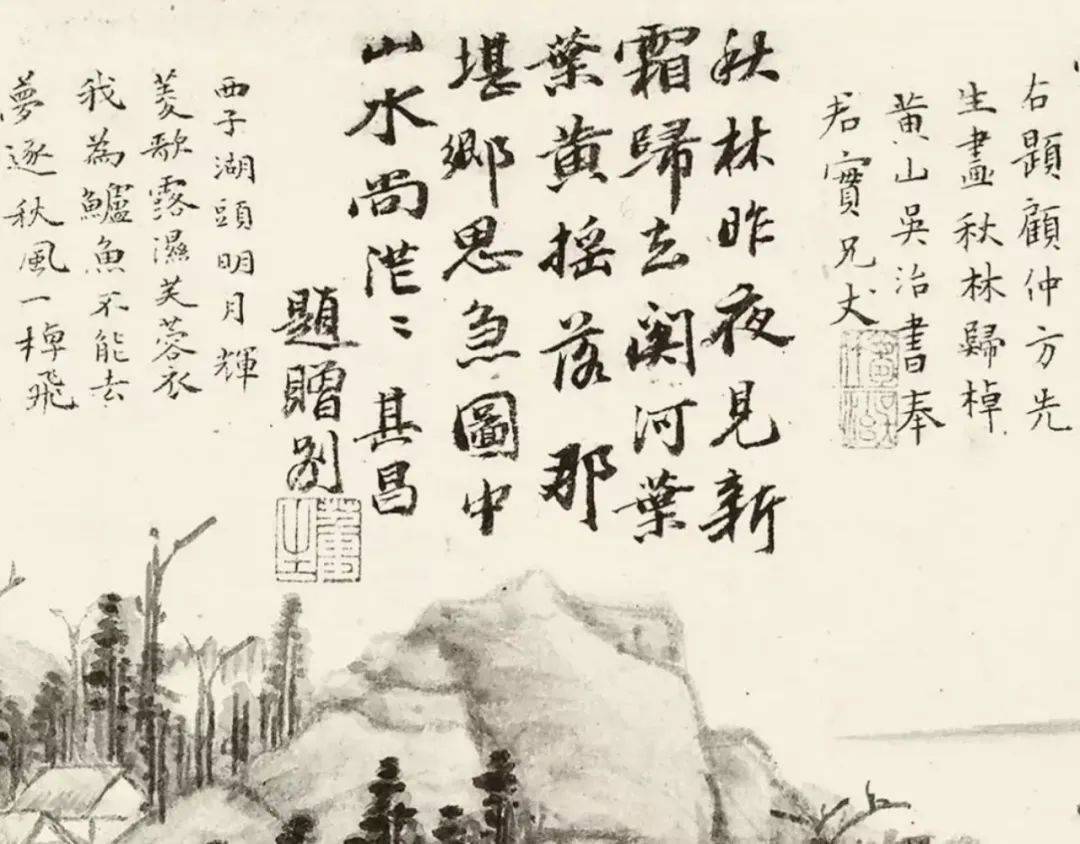 右題顧仲方先
生畫秋林歸棹
黃山吳治書奉
君實兄丈
秋林昨夜見新
霜歸去関河葉
葉黃揺落那
堪鄉思急圖中
山水尚茫〻其昌
題贈別
西子湖頭明月輝
菱歌露濕芙蓉衣
我為鱸魚不能去
夢逐秋風一棹飛